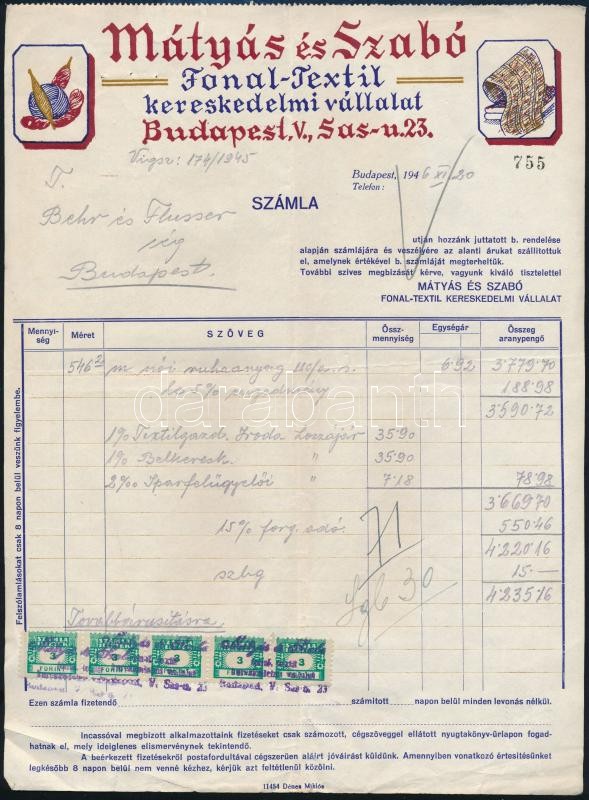 Mátyás és Szabó
Fonal-Textil
kereskedelmi vállalat
Budapest, V., Sas-u. 23.
755
Vigsz: 174/1945
Budapest, 1946 XI. 20
Telefon:
T.
Behr és Flusser
cég
Budapest.
SZÁMLA
utján hozzánk juttatott b. rendelése
alapján számlájára és veszélyére az alanti árukat szállitottuk
el, amelynek értékével b. számláját megterheltük.
További szives megbizását kérve, vagyunk kiváló tisztelettel
MÁTYÁS ÉS SZABÓ
FONAL-TEXTIL KERESKEDELMI VÁLLALAT
Mennyiség Méret SZÖVEG Összmennyiség Egységár Összeg aranypengő
546 m női ruhaanyag 6·92 3·779·70
5% 188·98
3·590·72
1% Textilgazd. Iroda 35·90
1% Belkeresk. " 35·90
2‰ Iparfelügyelői " 7·18 78·98
3·669·70
15% forg. adó. 550·46
4·220·16
15·—
4·235·16
71
630
Továbbárusításra
Felszólamlásokat csak 8 napon belül veszünk figyelembe.
3 3 3 3 3
FORINT
Budapest, V. Sas-u. 23
darabanth
Ezen számla fizetendő számitott napon belül minden levonás nélkül.
Incassóval megbizott alkalmazottaink fizetéseket csak számozott, cégszöveggel ellátott nyugtakönyv-ürlapon fogad-
hatnak el, mely ideiglenes elismervénynek tekintendő.
A beérkezett fizetésekről postafordultával cégszerüen aláirt jóváirást küldünk. Amennyiben vonatkozó értesitésünket
legkésőbb 8 napon belül nem venné kézhez, kérjük azt feltétlenül közölni.
11454 Dénes Miklós